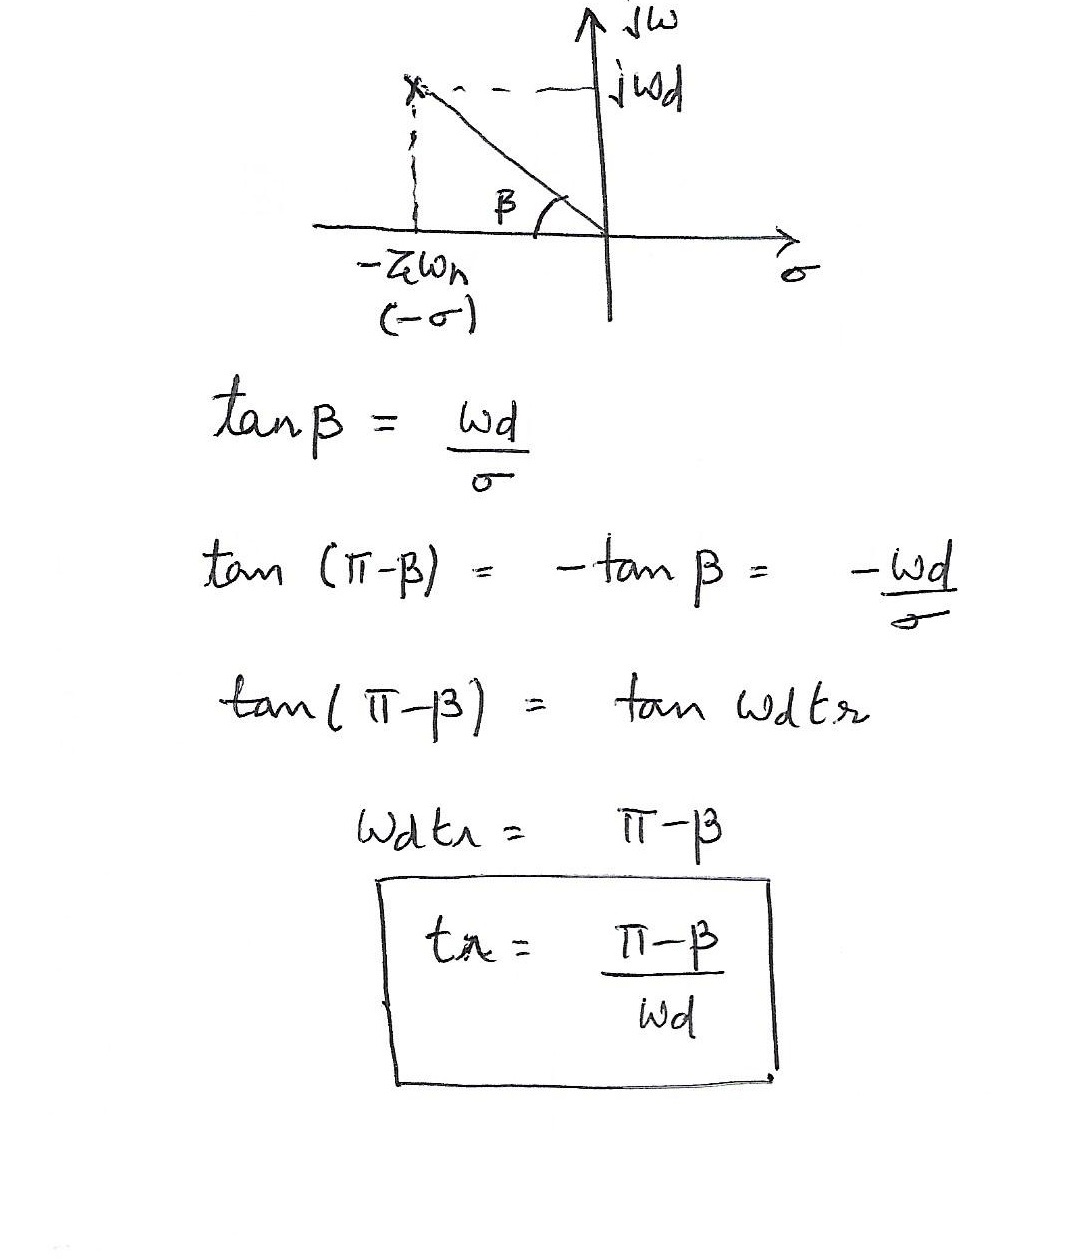 jω
jωd
β
-ζωn
σ
(-σ)
tanβ = ωd/σ
tan (π-β) = -tan β = -ωd/σ
tan(π-β) = tan ωdtr
ωdtr = π-β
tr = π-β/ωd